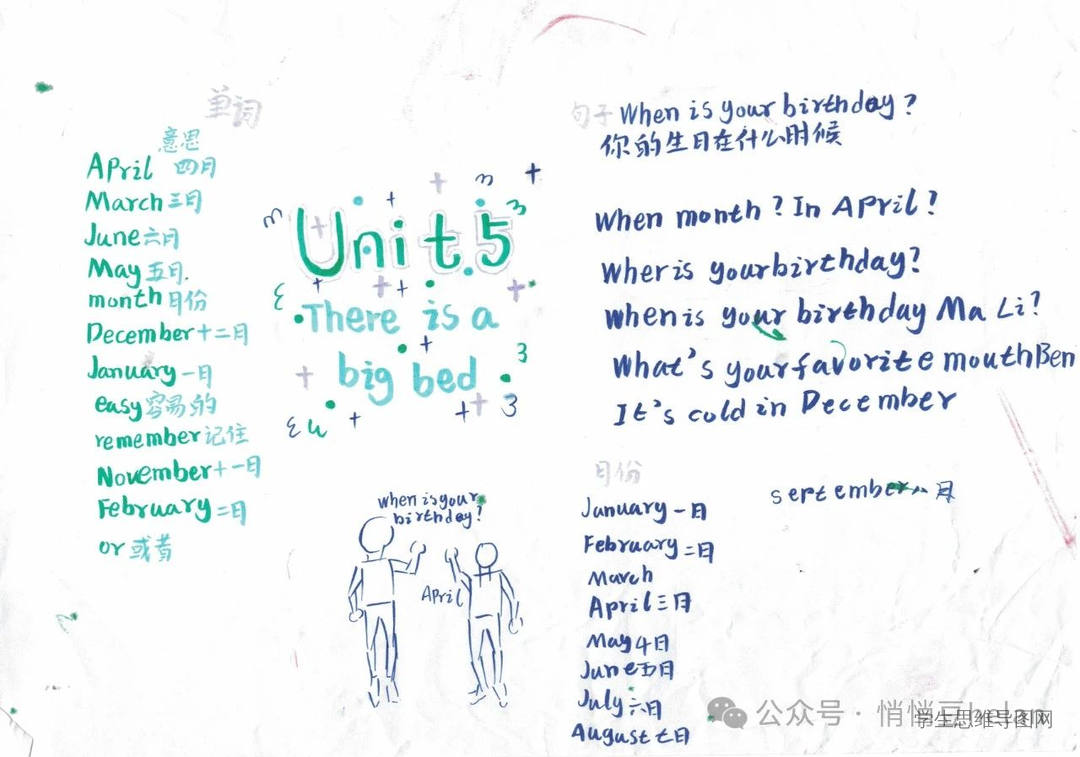 单词
意思
APril 四月
March 三月
June 六月
May 五月.
month 月份
December 十二月
January 一月
easy 容易的
remember 记住
November 十一月
February 二月
or 或者
Unit 5
There is a
big bed
when is your
birthday?
April
句子 When is your birthday?
你的生日在什么时候
When month? In APril?
When is your birthday?
When is your birthday Ma Li?
What's your favorite mouth Ben
It's cold in December
月份
January 一月
February 二月
March
April 三月
May 4月
June 五月
July 六月
August 七月
september 八月
公众号 · 悄悄豆
学生思维导图网